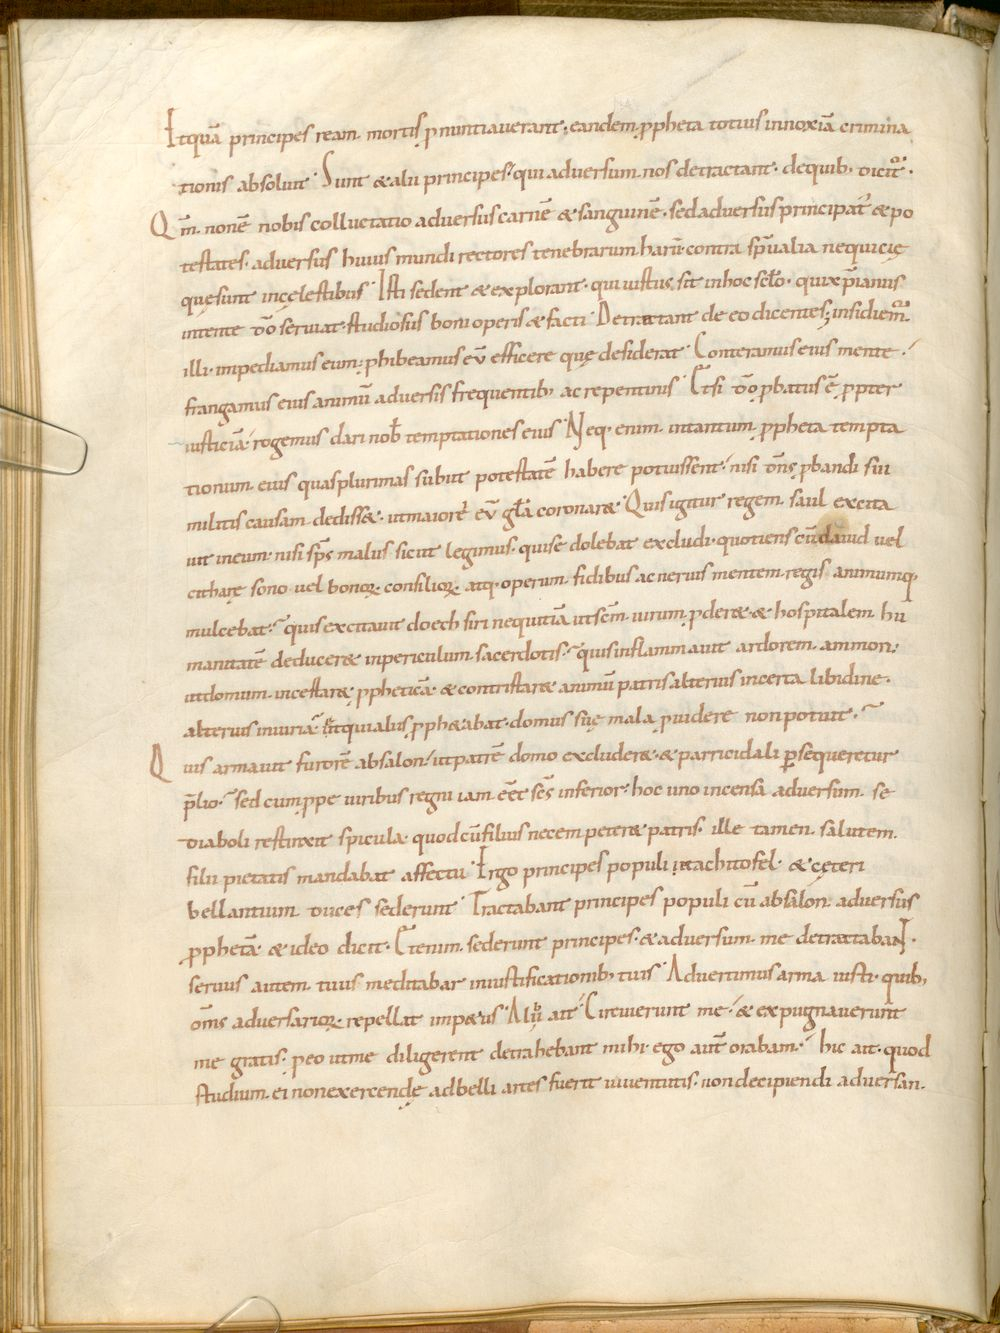 Et quā principes ream mortis ꝓnuntiauerant, eandem ꝓpheta totius innoxiā crimina
tionis absoluit. Sunt & alii principes, qui adversum nos detractant. de quib. dicit᷑.
Qm̄ non ē nobis colluctatio adversus carnē & sanguinē. sed adversus principat᷑ & po
testates. adversus huius mundi rectores tenebrarum harū. contra sp̄ualia nequicię
quę sunt in cęlestibus. Isti sedent & explorant. qui iustus sit in hoc sc̄lo. qui xp̄ianus
intente dō seruiat. studiosus boni operis & facti. Detrattant de eo dicentes; insidiem᷑
illi. impediamus eum; ꝓhibeamus eū efficere quę desiderat. Conteramus eius mentē.
frangamus eius animū adversis frequentib; ac repentinis. Etsi dō ꝓbatus ē ꝓpter
iusticiā. rogemus dari nob̄ temptationes eius. Neq. enim intantum ꝓpheta tempta
tionum eius quas plurimas subiit potestatē habere potuissent. nisi dn̄s ꝓbandi sui
militis causam dediss&. ut maiorē eū gl̄a coronar&. Quis igitur regem saul excita
uit in eum. nisi sp̄s malus. sicut legimus. qui se dolebat excludi. quotiens cū dauid vel
citharę sono vel bonoꝝ consilioꝝ atq. operum fidibus ac neruis mentem regis animumq.
mulcebat. quis excitauit doech siri nequitiā ut sc̄m uirum ꝓder& & hospitalem hu
manitatē deducer& in periculum sacerdotis. quis inflammauit ardorem ammon.
ut domum incestar& ꝓpheticā & contristar& animū patris alterius incerta libidine.
alterius iniuriā. Et qui aliis ꝓph&abat. domus suę mala ꝓuidere non potuit.
Quis armauit furorē absalon. ut patrē domo excluder& & parricidali ꝑsequeretur
p̄lio. sed cum ꝓpe uiribus regni iam eēt sc̄s inferior. hoc uno incensa adversum se
diaboli restinxit spicula. quod cū filius necem peter& patris. ille tamen salutem
filii pietatis mandabat affectu. Ergo principes populi achitofel & cęteri
bellantium duces sederunt. Tractabant principes populi cū absalon adversus
ꝓphetā & ideo dicit. Etenim sederunt principes. & adversum me detrattabaNT.
seruus autem tuus meditabar in iustificationib; tuis. Advertimus arma iusti. quib;
om̄s adversarioꝝ repellat imp&us. Alib̄ ait. Circuierunt me. & expugnauerunt
me gratis. ꝓ eo ut me diligerent detrahebant mihi. ego aūt orabam. hic ait. quod
studium ei non exercendę ad belli artes fuerit iuuentutis. non decipiendi adversan.